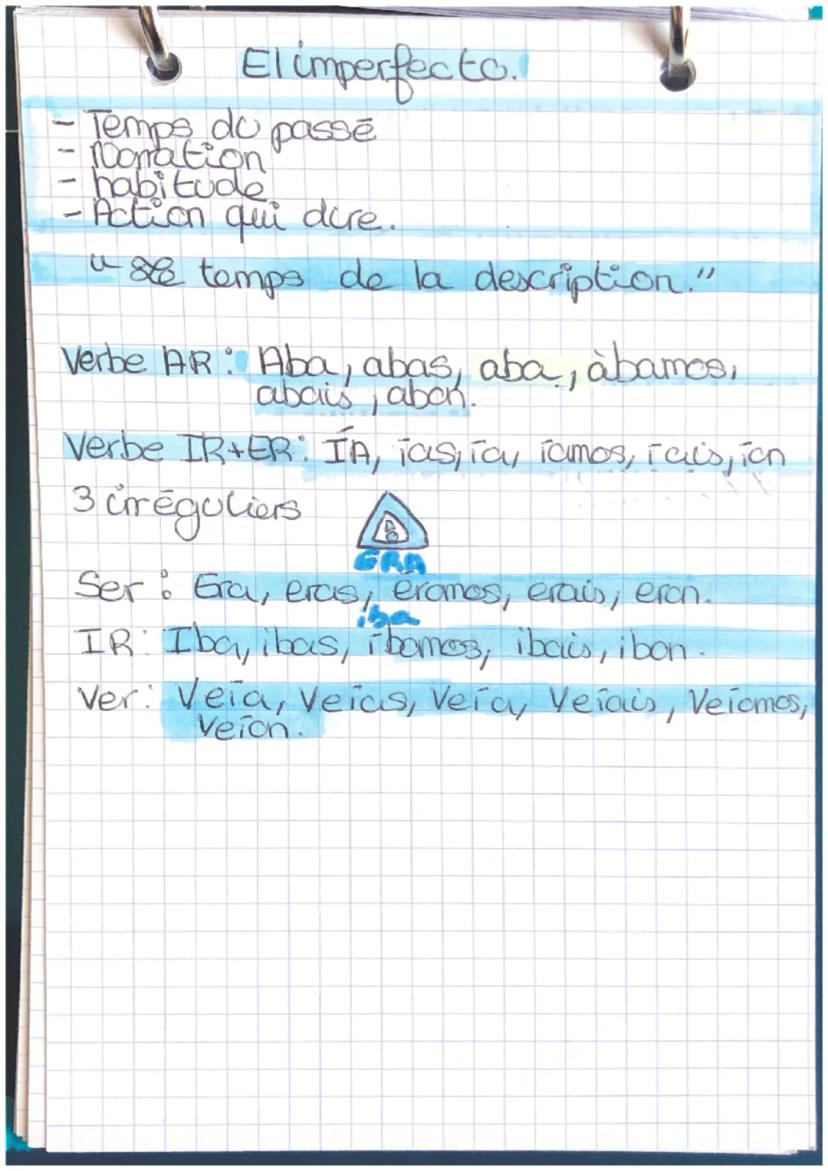 El imperfecto.
- Temps du passé
- Narration
- habitude
- Action qui dure.
" temps de la description."
Verbe AR : Aba, abas, aba, àbamos,
abais, aban.
Verbe IR+ER : ÍA, ías, ía, íamos, íais, ían
3 irréguliers
ERA
Ser : Era, eras, eramos, erais, eran.
iba
IR : Iba, ibas, íbamos, ibais, iban.
Ver : Veía, Veías, Veía, Veíais, Veíamos,
Veían.